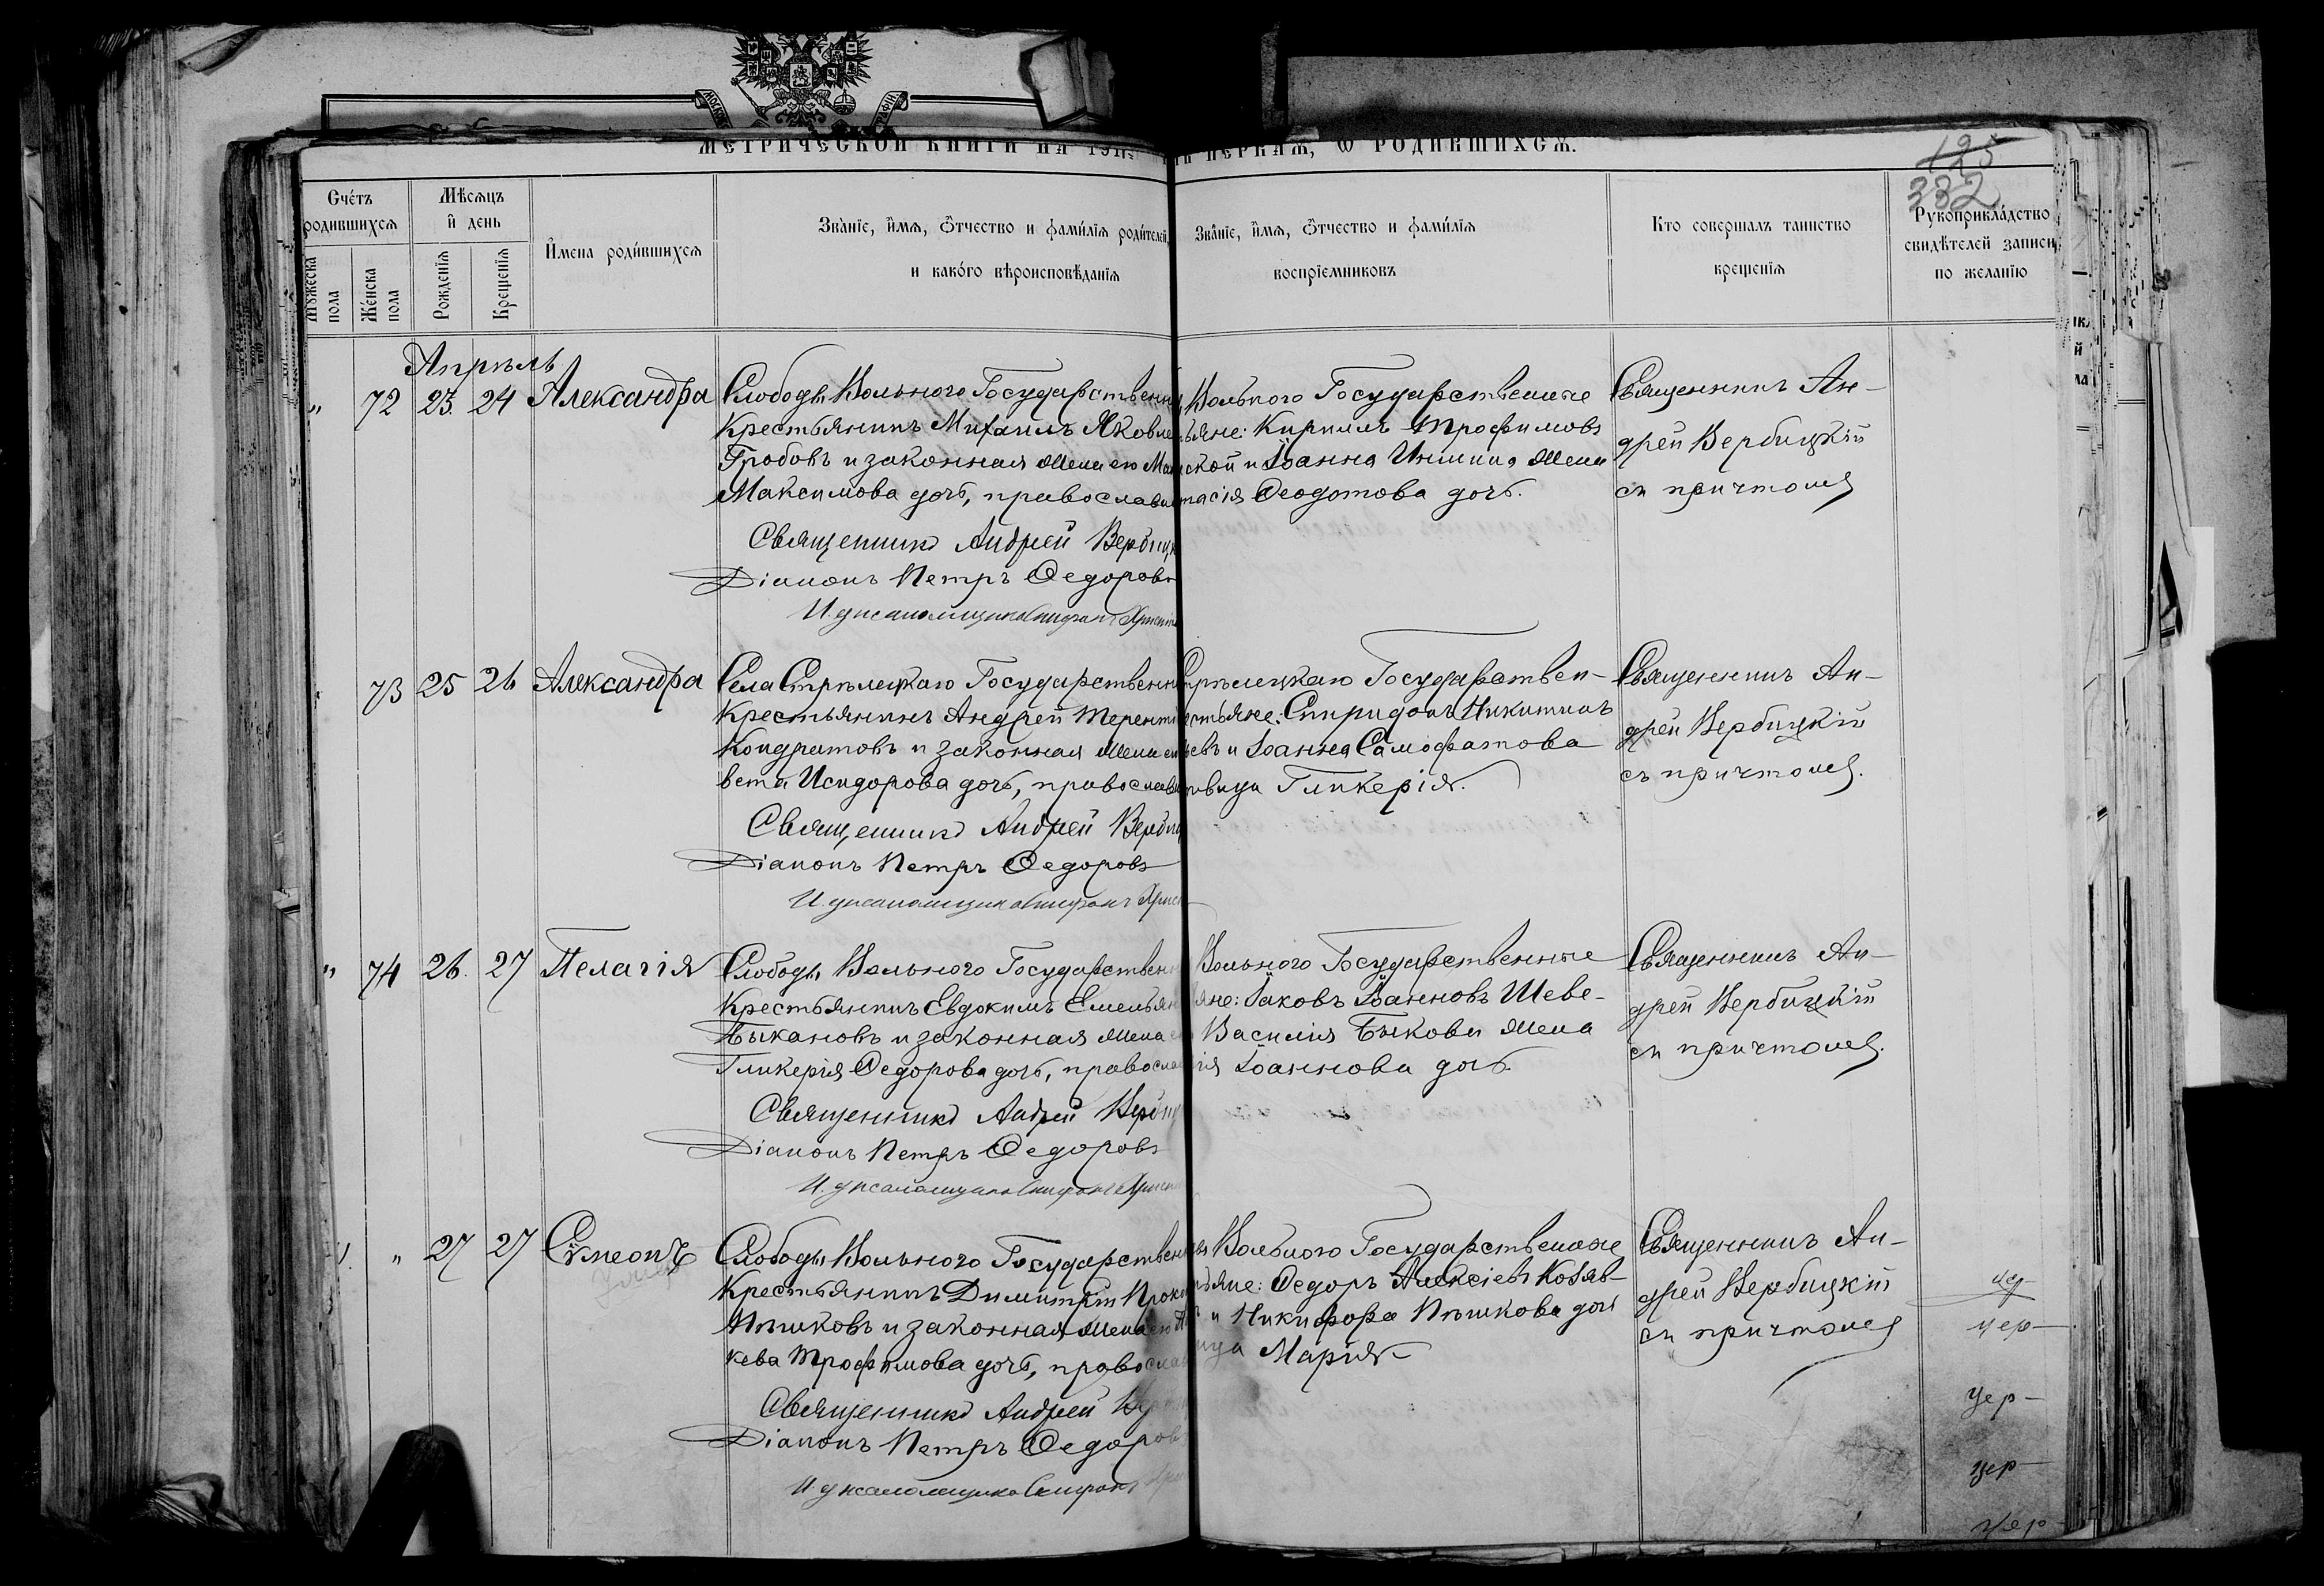 МЕТРИЧЕСКОЙ КНИГИ НА 191
ПЕРВАѦ, Ѡ РОДИВШИХСѦ.
125
332
Счётъ родившихсѧ
Мѣсѧцъ и день
Имена родившихсѧ
Званіе, имѧ, ѿчество и фамиліѧ родителей,
и какого вѣроисповѣданіѧ
Званіе, имѧ, ѿчество и фамиліѧ
воспріемниковъ
Кто совершалъ таинство
крещеніѧ
Рукоприкладство
свидѣтелей записи
по желанію
Мужеска пола
Женска пола
Рожденіѧ
Крещеніѧ
Апрѣль
" 72 23. 24 Александра
Слободы Вольного Государственн
Крестьянинъ Михаилъ Яковле
Гробовъ и законная жена его
Максимова дочь, православн
Священникъ Андрей Вербиц
Діаконъ Петръ Ѳедоровъ
И. д. псаломщика
Вольного Государственные
ьяне: Кириллъ Трофимовъ
ской и Іоанна жена
тасія Ѳеодотова дочь.
Священникъ Ан-
дрей Вербицкій
съ причтомъ
73 25 26 Александра
Села Стрѣлецкаго Государственн
Крестьянинъ Андрей Теренті
Кондратовъ и законная жена ег
вета Исидорова дочь, православ
Священникъ Андрей Верби
Діаконъ Петръ Ѳедоровъ
И. д. псаломщика
Стрѣлецкаго Государствен-
естьяне: Спиридонъ Никитинъ
евъ и Іоанна Самофатова
вица Гликерія.
Священникъ Ан-
дрей Вербицкій
съ причтомъ.
" 74 26. 27 Пелагія
Слободы Вольного Государствен
Крестьянинъ Евдокимъ Емельян
Цыкановъ и законная жена
Гликерія Ѳедорова дочь, правосла
Священникъ Андрей Верби
Діаконъ Петръ Ѳедоровъ
И. д. псаломщика
Вольного Государственные
яне: Іаковъ Іоанновъ Шеве-
Василія Быкова жена
ія Іоаннова дочь
Священникъ Ан-
дрей Вербицкій
съ причтомъ.
" 27 27 Сѵмеонъ
Слободы Вольного Государствен
Крестьянинъ Димитрій Прок
Пѣшковъ и законная жена его
кева Трофимова дочь, правосла
Священникъ Андрей
Діаконъ Петръ Ѳедоров
И. д. псаломщика
Вольного Государственные
ьяне: Ѳедоръ Алексіевъ Козяв-
и Никифора Пѣшкова дочь
ица Марія
Священникъ Ан-
дрей Вербицкій
съ причтомъ
чер
чер
чер
чер